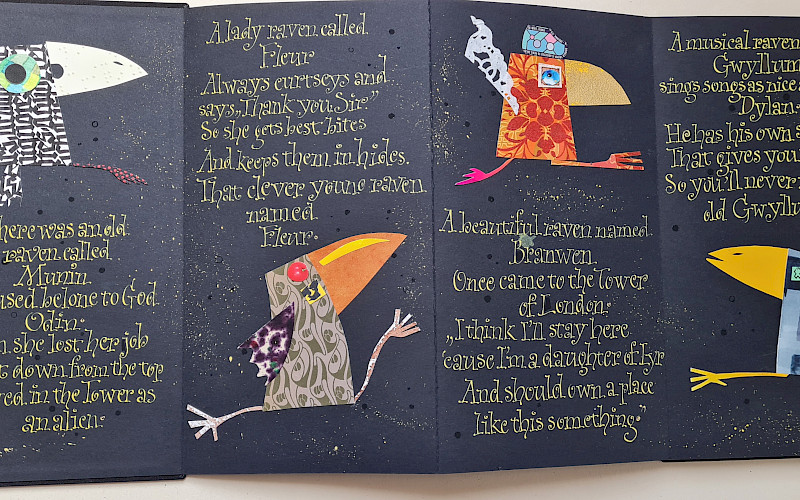 here was an old
raven called
Munin.
used belone to God
Odin.
she lost her job
down from the top
in the Tower as
an alien.
A lady raven called
Fleur
Always curtseys and
says „Thank you Sir”
So she gets best bites
And keeps them in hides.
That clever young raven
named
Fleur.
A beautiful raven named
Branwen.
Once came to the Tower
of London.
„I think I'll stay here
'cause I'm a daughter of Lyr
And should own a place
like this something.”
A musical raven
Gwyllum
sings songs as nice a
Dylan.
He has his own s
That gives you
So you'll never
old Gwyllu